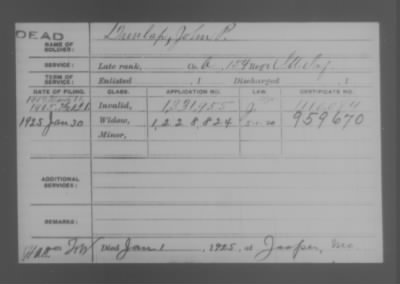 DEAD
NAME OF SOLDIER: Dunlap, John P.
SERVICE: Late rank, Co. A, 124 Reg't Ill. Inf.
TERM OF SERVICE: Enlisted , 1 Discharged , 1
DATE OF FILING. CLASS. APPLICATION NO. LAW. CERTIFICATE NO.
Invalid,
1925 Jan 30 Widow, 1,228,824 5-1-20 959670
Minor,
ADDITIONAL SERVICES:
REMARKS:
Died Jan 1, 1925, at Jasper, Mo.